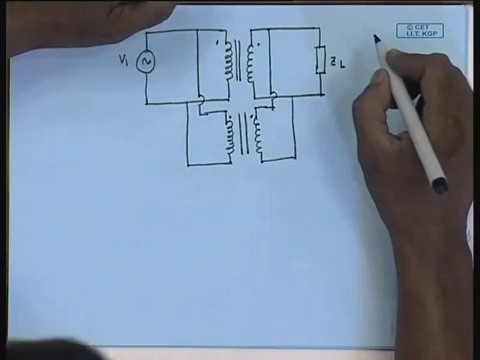 © CET
I.I.T. KGP
V1
~
ZL